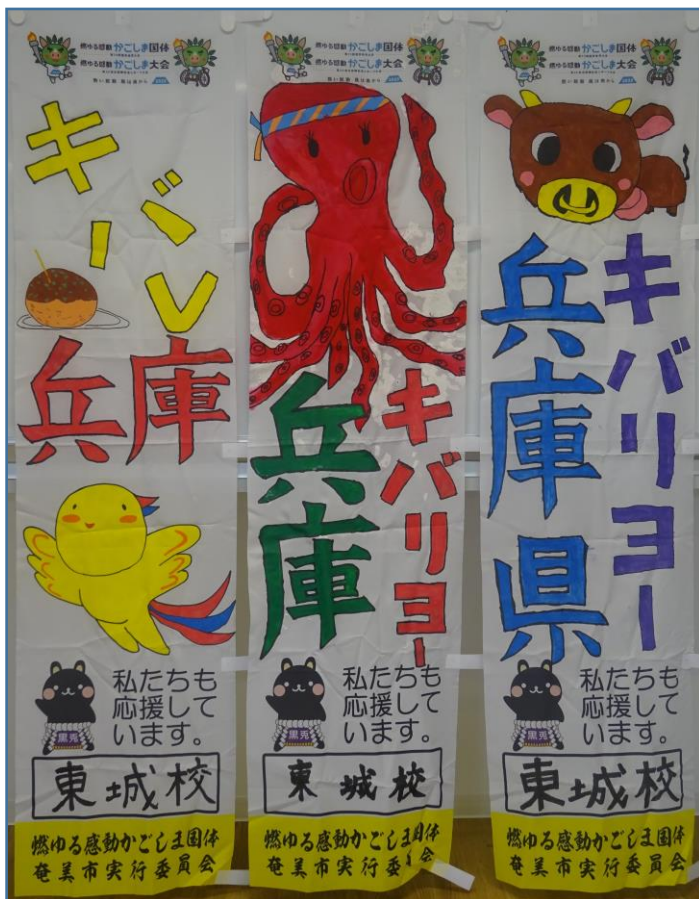 燃ゆる感動かごしま国体
燃ゆる感動かごしま大会
熱い鼓動 風は南から
キバレ
兵庫
私たちも
応援して
います。
黒兎
東城校
燃ゆる感動かごしま国体
奄美市実行委員会
燃ゆる感動かごしま国体
燃ゆる感動かごしま大会
熱い鼓動 風は南から
キバリヨー
兵庫
私たちも
応援して
います。
黒兎
東城校
燃ゆる感動かごしま国体
奄美市実行委員会
燃ゆる感動かごしま国体
燃ゆる感動かごしま大会
熱い鼓動 風は南から
キバリヨー
兵庫県
私たちも
応援して
います。
黒兎
東城校
燃ゆる感動かごしま国体
奄美市実行委員会